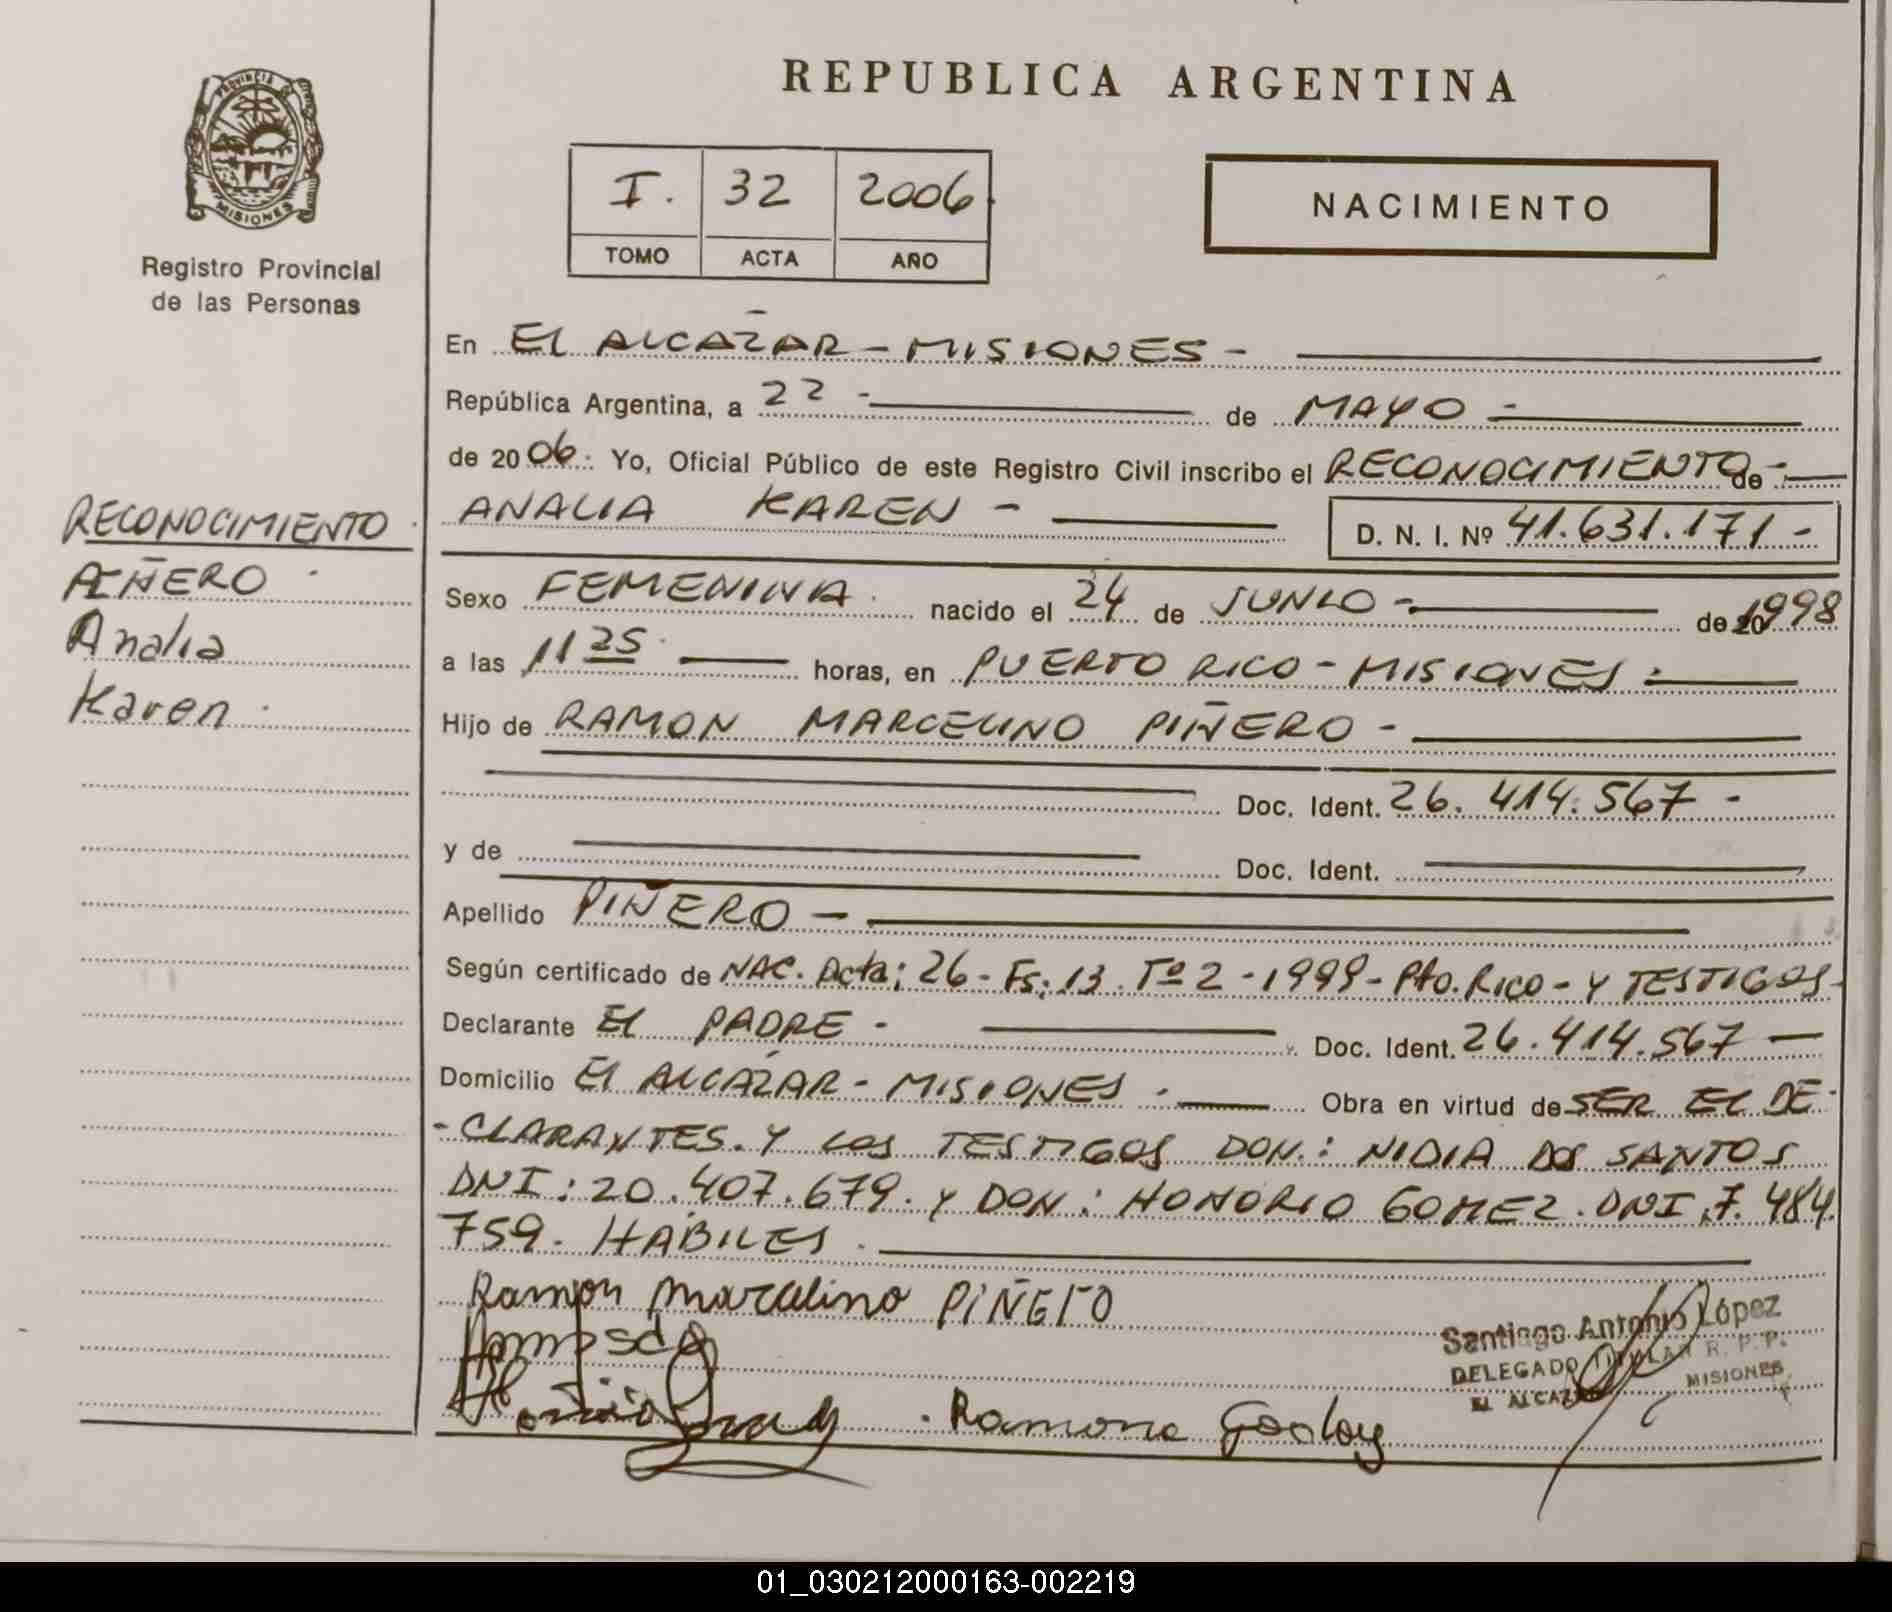 PROVINCIA DE
MISIONES
Registro Provincial
de las Personas
REPUBLICA ARGENTINA
I. 32 2006
TOMO ACTA AÑO
NACIMIENTO
En El ALCAZAR - MISIONES -
República Argentina, a 22 - de MAYO -
de 2006. Yo, Oficial Público de este Registro Civil inscribo el RECONOCIMIENTO de -
ANALIA KAREN - D. N. I. Nº 41.631.171 -
RECONOCIMIENTO
PIÑERO
Analia
Karen
Sexo FEMENINA nacido el 24 de JUNIO - de 1998
a las 11 25 horas, en PUERTO RICO - MISIONES
Hijo de RAMON MARCELINO PIÑERO -
Doc. Ident. 26.414.567 -
y de Doc. Ident.
Apellido PIÑERO -
Según certificado de NAC. Acta: 26 - Fs: 13 Tº 2 - 1999 - Pto. Rico - Y TESTIGOS -
Declarante El PADRE - Doc. Ident. 26.414.567 -
Domicilio El ALCAZAR - MISIONES - Obra en virtud de SER EL DE
- CLARANTES. Y LOS TESTIGOS DON: NIDIA DOS SANTOS
DNI: 20.407.679. Y DON: HONORIO GOMEZ. DNI. 7.484.
759. HABILES
Ramon Marcelino PIÑERO
Santiago Antonio López
DELEGADO TITULAR R. P. P.
EL ALCAZAR MISIONES
Ramona Godoy
01_030212000163-002219